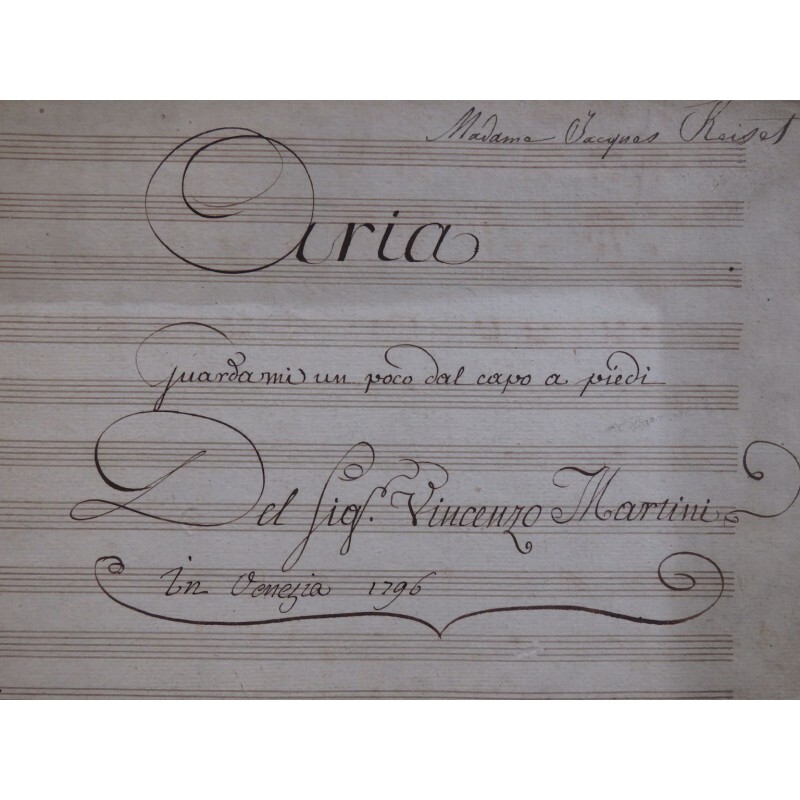 Madame Jacques Reiset
Aria
Guardami un poco dal capo a piedi
Del Sigr. Vincenzo Martini
in Venezia 1796